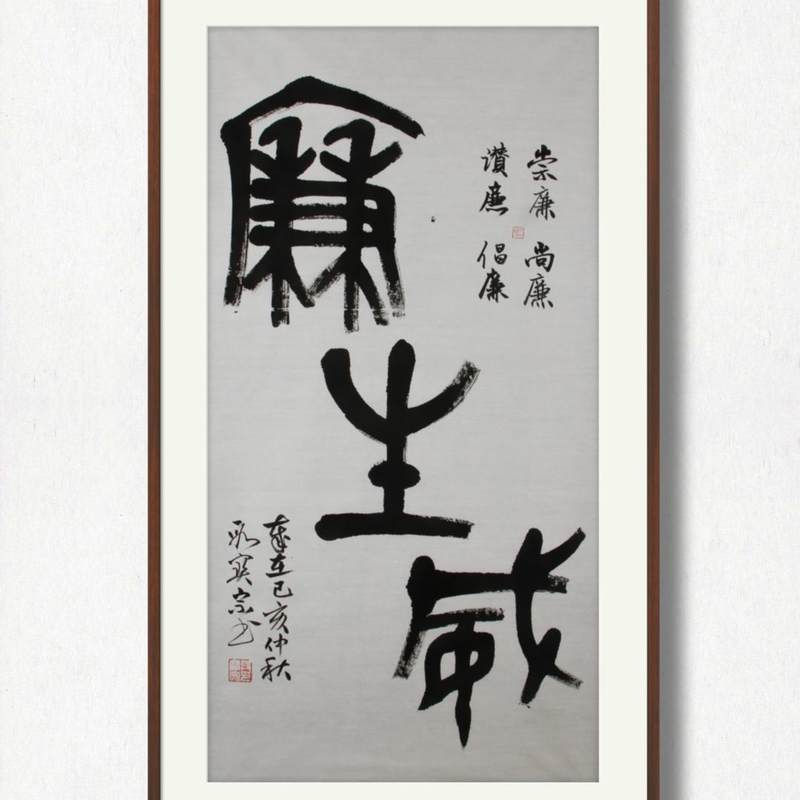 崇廉 尚廉
讃廉 倡廉
廉生威
歲在己亥仲秋
宗书